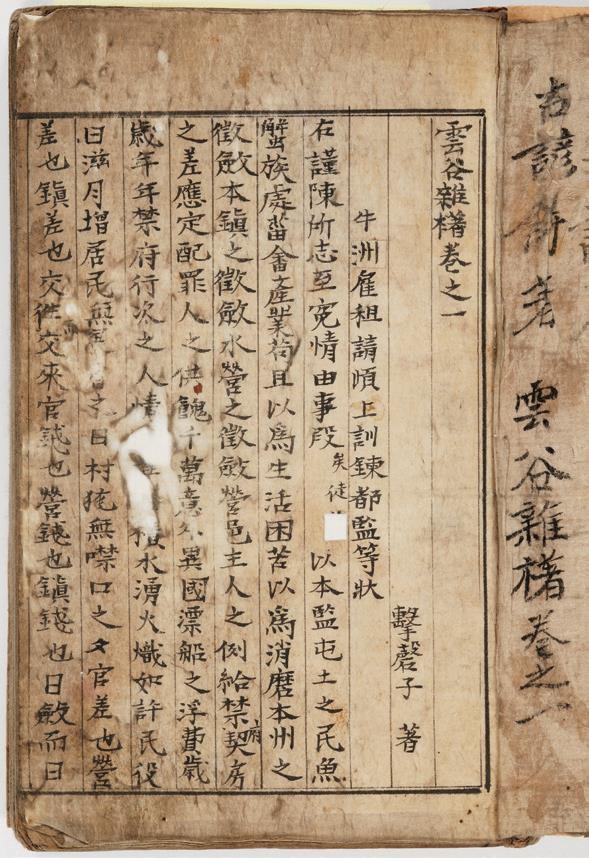 雲谷雜櫡卷之一
雲谷雜櫡卷之一
擊磬子 著
牛洲雇租請頉上訓鍊都監等狀
右謹陳所志至寃情由事段矣徒 以本監屯土之民魚
蟹族處菑畬產業苟且以爲生活困苦以爲消磨本州之
徵斂本鎭之徵斂水營之徵斂營邑主人之例給禁府契房
之差應定配罪人之供餽千萬意外異國漂船之浮費歲
歲年年禁府行次之人情 水湧火熾如許民役
日滋月增居民無 之日村狵無噤口之夕官差也營
差也鎭差也交徃交來官錢也營錢也鎭錢也日斂而日